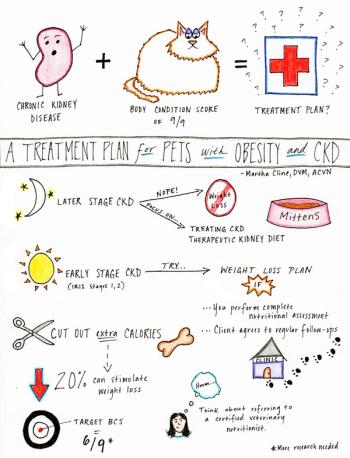 ? ? ? ?
+
=
CHRONIC KIDNEY
DISEASE
BODY CONDITION SCORE
OF 9/9
TREATMENT PLAN?
A TREATMENT PLAN for PETS with OBESITY and CKD
- Martha Cline, DVM, ACVN
LATER STAGE CKD
NOPE!
Weight
Loss
FOCUS ON...
TREATING CKD
THERAPEUTIC KIDNEY DIET
Mittens
EARLY STAGE CKD
(IRIS stages 1, 2)
TRY...
WEIGHT LOSS PLAN
IF
... You perform complete
nutritional assessment
... Client agrees to regular follow-ups
CUT OUT extra CALORIES
CLINIC
20% can stimulate
weight loss
Hmm..
TARGET BCS
=
6/9*
Think about referring to
a certified veterinary
nutritionist.
*More research needed